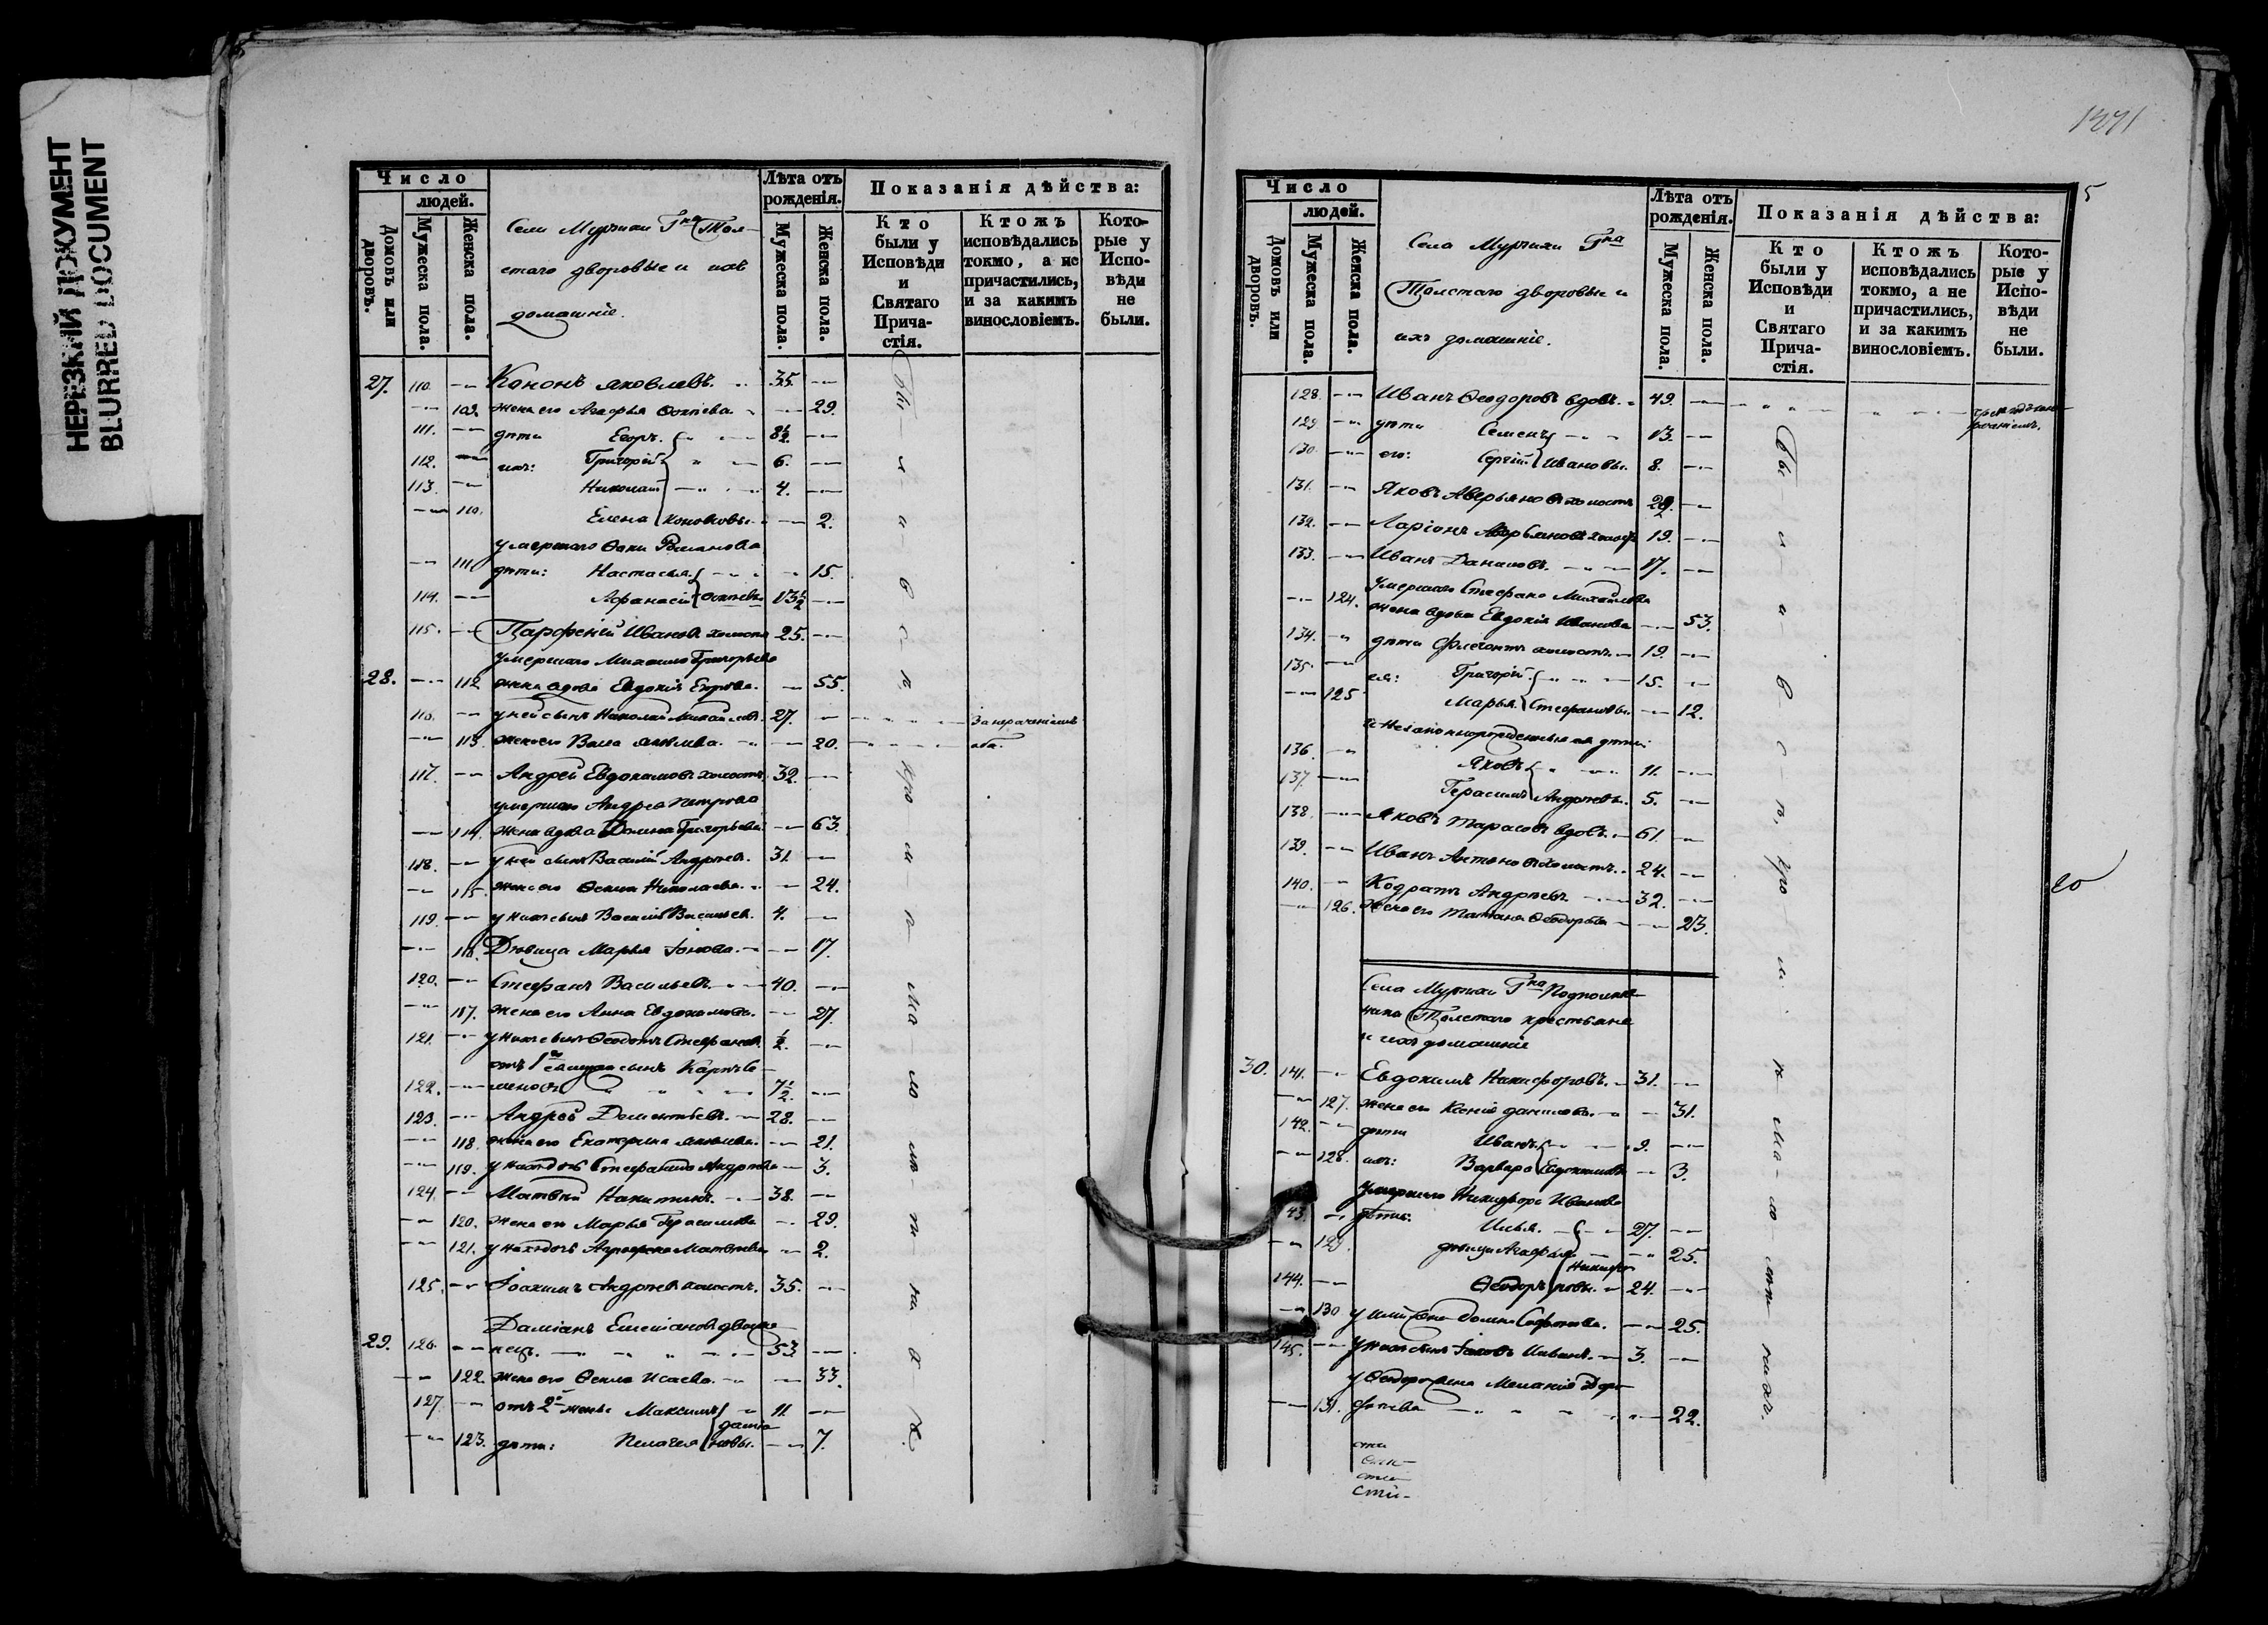 НЕРЕЗКИЙ ДОКУМЕНТ
BLURRED DOCUMENT
Число
людей.
Домовъ или дворовъ.
Мужеска пола.
Женска пола.
Села Мурзихи Гна Тол-
стаго дворовые и ихъ
домашніе.
Лѣта отъ рожденія.
Мужеска пола.
Женска пола.
Показанія дѣйства:
Кто были у Исповѣди и Святаго Прича-стія.
Ктожъ исповѣдались токмо, а не причастились, и за какимъ винословіемъ.
Кото-рые у Испо-вѣди не были.
27. 110. Кононъ Яковлевъ. 35.
109. жена его Агафья 29.
111. дѣти Егоръ 8½
112. ихъ: Григорій 6.
113. Николай 4.
110. Елена Кононовы. 2.
умершаго Романова
111. дѣти: Настасья 15.
114. Афанасій 13½
115. Парфеній Ивановъ холостъ 25.
умершаго Михаила Григорьева
28. 112 жена вдова Евдокія Егорова. 55.
116. у ней сынъ Николай Михайловъ. 27.
113. жена его Яковлева. 20.
117. Андрей Евдокимовъ холостъ 32.
умершаго Андрея Петрова
114. жена вдова Домна Григорьева 63.
118. у ней сынъ Василій Андреевъ. 31.
115. жена его Ѳекла Николаева. 24.
119. у нихъ сынъ Василій Васильев. 4.
116. Дѣвица Марья Іонова. 17.
120. Стефанъ Васильевъ. 40.
117. жена его Анна Евдокимова. 27.
121. у нихъ сынъ Ѳеодотъ Стефановъ. ½.
122. 7½.
123. Андрей Дементьевъ. 28.
118. жена его Екатерина Яковлева. 21.
119. у нихъ дочь Стефанида Андреева 3.
124. Матвей Никитинъ. 38.
120. жена его Марья Герасимова 29.
121. у нихъ дочь Матвеева 2.
125. Іоакимъ Андреевъ холостъ. 35.
Даміанъ Емеліановъ двоеже-
29. 126. нецъ. 53.
122. жена его Ѳекла Исаева. 33.
127. отъ 2й жены Максимъ 11.
123. дѣти: Пелагея даміановы. 7.
Были а всѣ кромѣ малолѣтныхъ.
1371
5
Число
людей.
Домовъ или дворовъ.
Мужеска пола.
Женска пола.
Села Мурзихи Гна
Толстаго дворовые и
ихъ домашніе.
Лѣта отъ рожденія.
Мужеска пола.
Женска пола.
Показанія дѣйства:
Кто были у Исповѣди и Святаго Прича-стія.
Ктожъ исповѣдались токмо, а не причастились, и за какимъ винословіемъ.
Кото-рые у Испо-вѣди не были.
128. Иванъ Ѳеодоровъ вдовъ. 49.
129. дѣти Семенъ 13.
130. его: Сергій Ивановы. 8.
131. Яковъ Аверьяновъ холостъ 22.
132. Ларіонъ Аверьяновъ холостъ 19.
133. Иванъ Даниловъ. 17.
умершаго Стефана Михайлова
124. жена вдова Евдокія Иванова 53.
134. дѣти холостъ. 19.
135. ея: Григорій 15.
125 Марья Стефановы. 12.
и незаконнорожденные ея дѣти:
136. Яковъ 11.
137. Герасимъ Андреевы. 5.
138. Яковъ Тарасовъ вдовъ. 61.
139. Иванъ Антоновъ холостъ. 24.
140. Кодратъ Андреевъ 32.
126. жена его Татьяна Ѳеодорова 23.
20
Села Мурзихи Гна Подполков-
ника Толстаго крестьяне
и ихъ домашніе
30. 141. Евдокимъ Никифоровъ. 31.
127. жена его Ксенія Данилова. 31.
142. дѣти Иванъ 9.
128. ихъ: Варвара Евдокимовы 3.
умершаго Никифора Иванова
143. дѣти: Илья. 27.
129. дѣвица Агафья 25.
144. Ѳеодоръ Никифоровы. 24.
130 у Ильи жена Домна 25.
145. у нихъ сынъ Іаковъ Ильинъ. 3.
у Ѳеодора жена Меланія Доро-
131. феева 22.
Были а всѣ, кромѣ малолѣтныхъ.